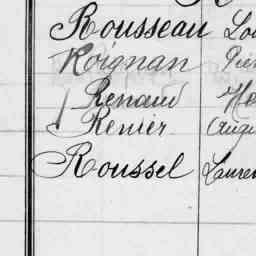 Rousseau Lou
Roignan Pier
Renaud He
Renier Augu
Roussel Lauren